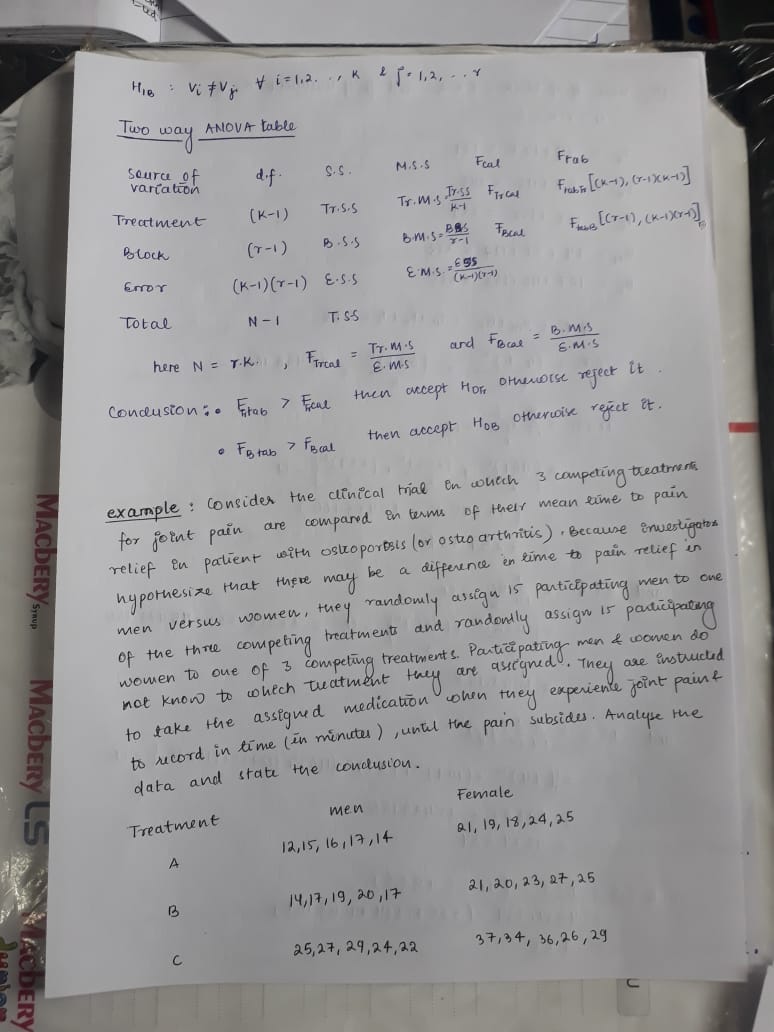 H₁B : Vi ≠ Vj, ∀ i = 1,2. .., K & j = 1,2, .. r
Two way ANOVA table
Source of variation d.f. S.S. M.S.S Fcal Ftab
Treatment (K-1) Tr.S.S Tr.M.S = Tr.SS/K-1 FTrCal FtabTr [(K-1), (r-1)(K-1)]
Block (r-1) B.S.S B.M.S = BSS/r-1 FBcal FtabB [(r-1), (K-1)(r-1)]
Error (K-1)(r-1) E.S.S E.M.S. = ESS/(K-1)(r-1)
Total N-1 T.SS
here N = r.K. , FTrcal = Tr.M.S/E.M.S and FBcal = B.M.S/E.M.S
Conclusion : • Ftrtab > Ftrcal then accept HoTr otherwise reject it .
• FBtab > FBcal then accept HoB otherwise reject it.
example : Consider the clinical trial in which 3 competing treatments
for joint pain are compared in terms of their mean time to pain
relief in patient with osteoporosis (or osteo arthritis) . Because investigators
hypothesize that there may be a difference in time to pain relief in
men versus women, they randomly assign 15 participating men to one
of the three competing treatments and randomly assign 15 participating
women to one of 3 competing treatments. Participating men & women do
not know to which treatment they are assigned. They are instructed
to take the assigned medication when they experience joint pain &
to record in time (in minutes) , until the pain subsides. Analyse the
data and state the conclusion.
Treatment men Female
A 12,15, 16,17,14 21, 19, 18, 24, 25
B 14,17,19, 20,17 21, 20, 23, 27, 25
C 25,27, 29,24,22 37,34, 36,26, 29
MACBERY Syrup
MACBERY LS
MACBERY